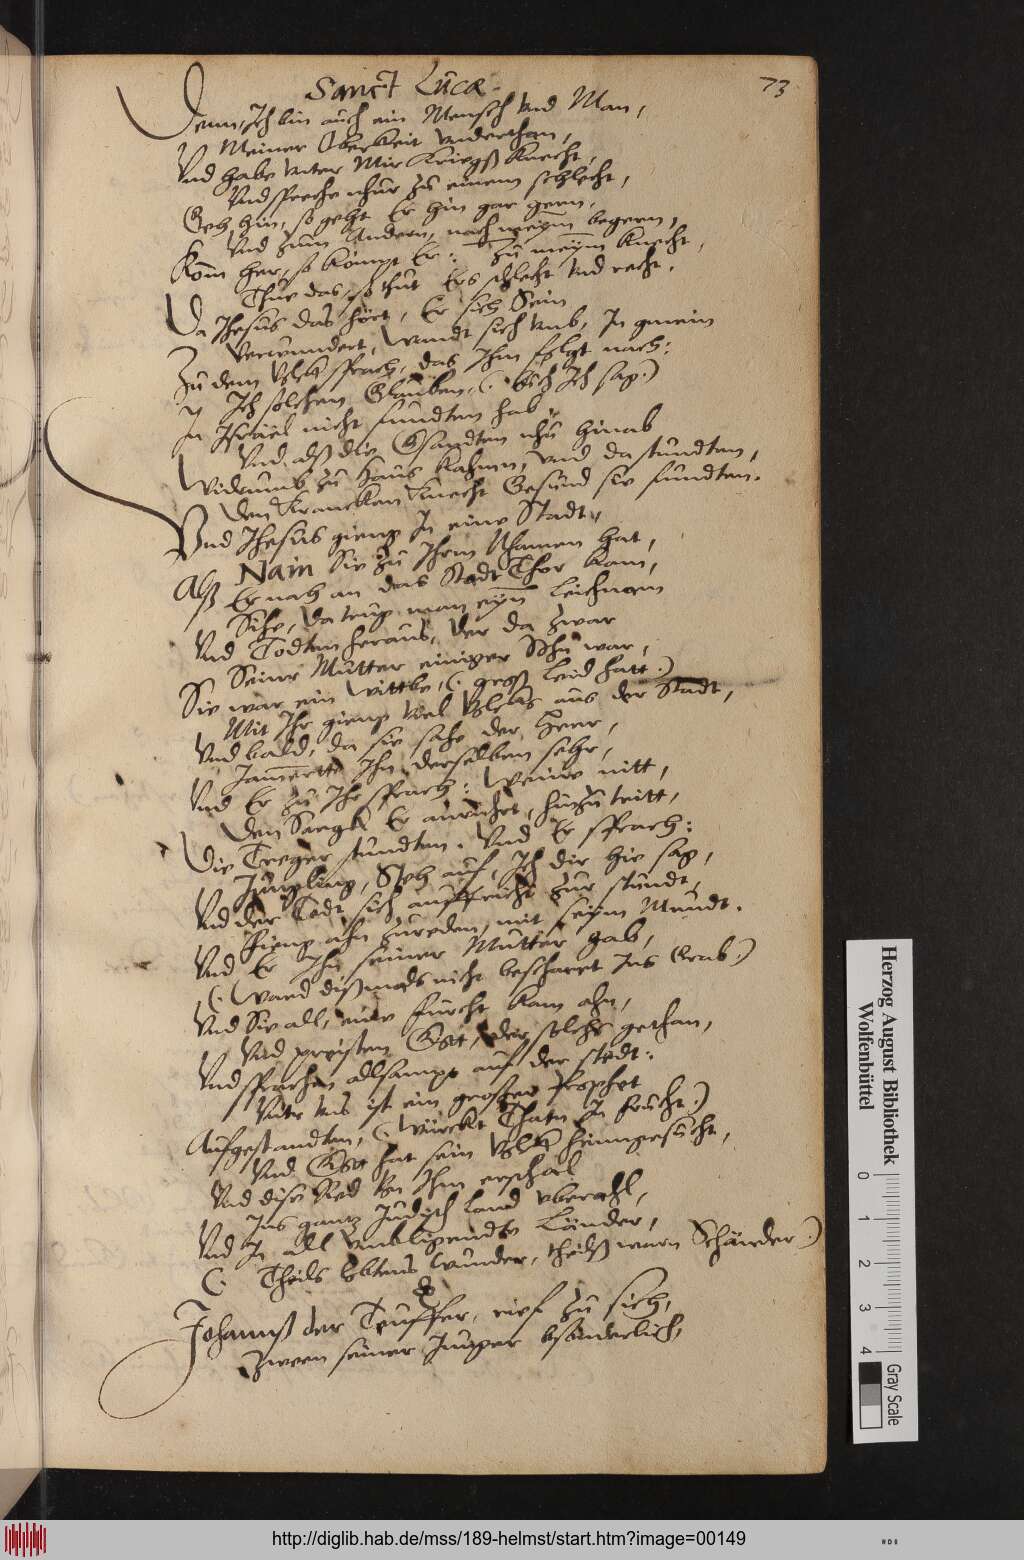 Sanct Lucæ.
73
Denn, Ich bin auch ein Mensch vnd Man,
Meiner Oberkeit vnderthan,
Vnd habe vnter Mir Kriegß Knecht,
Vnd spreche nhur zu einem schlecht,
Geh hin, so geht Er hin gar gern,
Vnd zum Andern, nach meym begern,
Kom her, so kömpt Er: Zu meym Knecht,
Thue das, so thut Ers schlecht vnd recht.
Da Jhesus das hört, Er sich Sein
Verwundert, Wendt sich vmb, In gmein
Zu dem Volck sprach, das Ihm folgt nach:
Ich solchen Glauben, (: Euch Ich sag:)
In Israel nicht fundten hab
Vnd alß die Gsandten nhu hinab
Widrumb zu Haus kahmen, vnd da stundten,
Den Krancken Knecht Gesund sie fundten.
Vnd Jhesus gieng In eine Stadt,
Nain Sie zu Ihrm Nhamen hat,
Alß Er nah an das Stadt Thor kam,
Sihe, da trug man eym Leichnam
Vnd Todten heraus, der da zwar
Seiner Mutter einiger Sohn war,
Sie war ein Wittbe, (: groß leid hatt:)
Mit Ihr gieng viel Volcks aus der Stadt,
Vnd bald, da sie sahe der Herr,
Jamertte Ihn derselben sehr,
Vnd Er zu Ihr sprach: Weine nitt,
Den Sargk Er anrühet, hinzu tritt,
Die Treger stundten. Vnd Er sprach:
Jüngling, Steh auf, Ich dir hie sag,
Vnd der Todt sich auffricht zur stundt,
Fieng ahn zureden, mit seym Mundt.
Vnd Er Ihn seiner Mutter gab,
(: Ward dißmals nicht bescharret Ins Grab:)
Vnd Sie all, eine furcht kam ahn,
Vnd preisten Gott, der solchs gethan,
Vnd sprachen allsampt auf der stedt:
Vnter vns ist ein grosser Prophet
Aufgestandten, (: Würckt Thaten In frucht:)
Vnd Gott hat sein Volck heimgesucht,
Vnd dise Red von Ihm erschal
Ins gantz Jüdisch Land vberahl,
Vnd In all vmbligendte Länder,
(: Theils lobtens Wunder, theilß warn Schänder:)
Johanneß der Teuffer, rief zu sich,
Zween seiner Junger bsönderlich,
Herzog August Bibliothek
Wolfenbüttel
0 1 2 3 4
Gray Scale
http://diglib.hab.de/mss/189-helmst/start.htm?image=00149